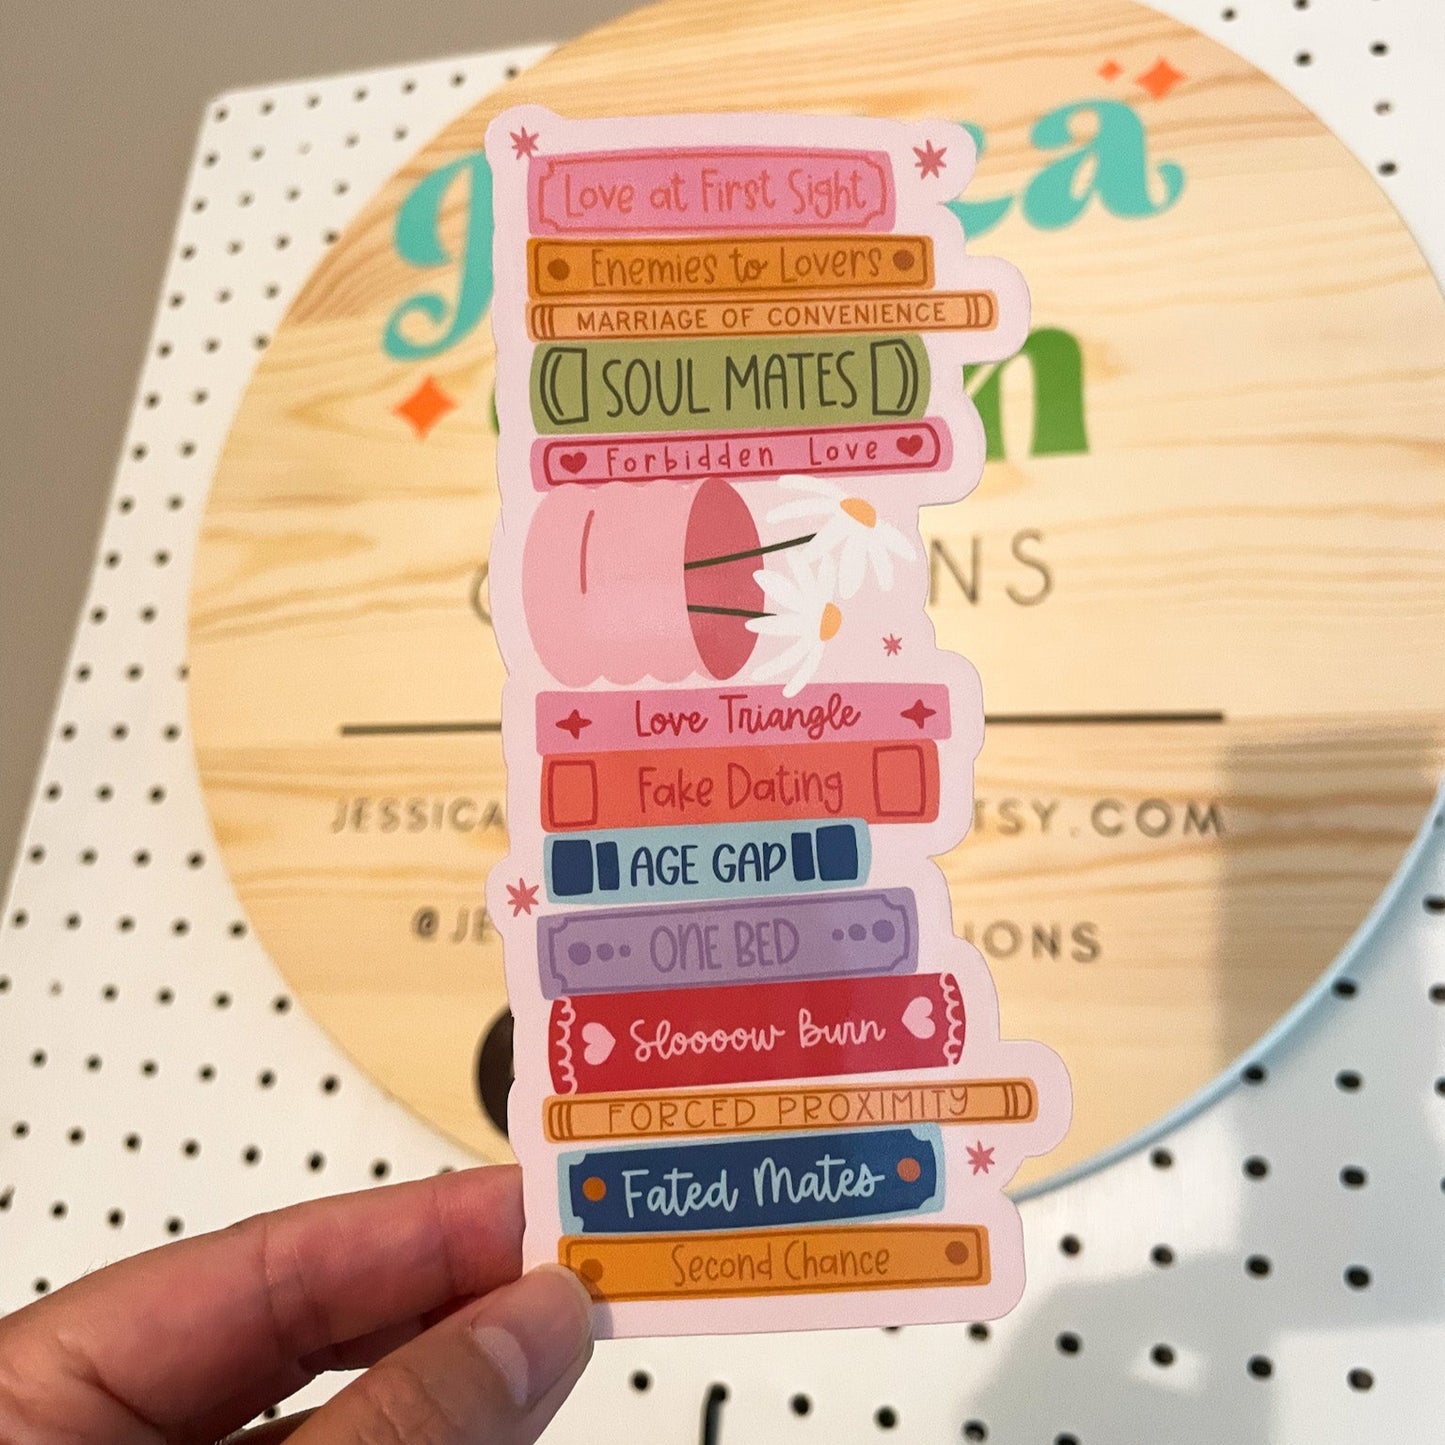 Love at First Sight
Enemies to Lovers
MARRIAGE OF CONVENIENCE
SOUL MATES
Forbidden Love
Love Triangle
Fake Dating
AGE GAP
ONE BED
Sloooow Burn
FORCED PROXIMITY
Fated Mates
Second Chance
JESSICA
.COM